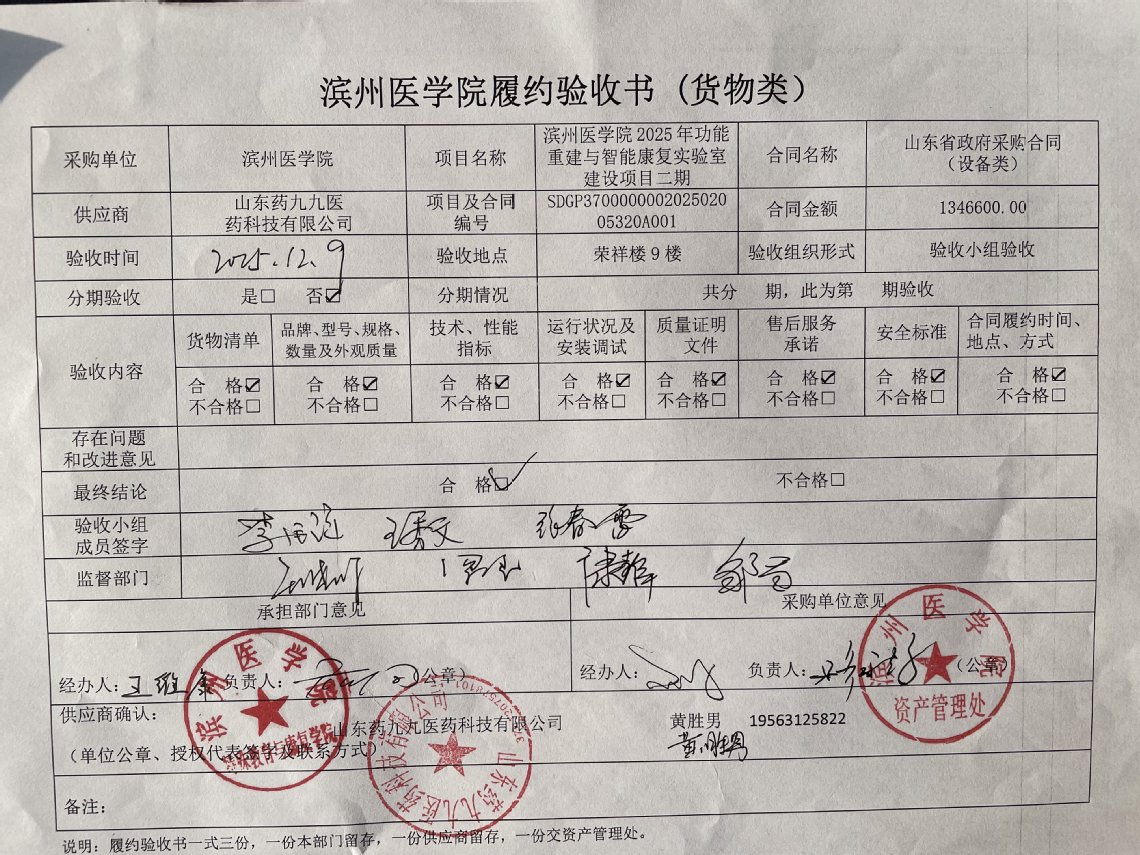 滨州医学院履约验收书（货物类）
采购单位 滨州医学院 项目名称 滨州医学院 2025 年功能重建与智能康复实验室建设项目二期 合同名称 山东省政府采购合同（设备类）
供应商 山东药九九医药科技有限公司 项目及合同编号 SDGP370000000202502005320A001 合同金额 1346600.00
验收时间 2025.12.9 验收地点 荣祥楼 9 楼 验收组织形式 验收小组验收
分期验收 是□ 否☑ 分期情况 共分 期，此为第 期验收
验收内容 货物清单 品牌、型号、规格、数量及外观质量 技术、性能指标 运行状况及安装调试 质量证明文件 售后服务承诺 安全标准 合同履约时间、地点、方式
合 格☑ 合 格☑ 合 格☑ 合 格☑ 合 格☑ 合 格☑ 合 格☑ 合 格☑
不合格□ 不合格□ 不合格□ 不合格□ 不合格□ 不合格□ 不合格□ 不合格□
存在问题和改进意见
最终结论 合 格☑ 不合格□
验收小组成员签字
监督部门
承担部门意见 采购单位意见
经办人： 负责人： （公章） 经办人： 负责人： （公章）
滨州医学院
滨州医学院
资产管理处
供应商确认：
山东药九九医药科技有限公司 黄胜男 19563125822
（单位公章、授权代表签字及联系方式） 黄胜男
山东药九九医药科技有限公司
备注：
说明：履约验收书一式三份，一份本部门留存，一份供应商留存，一份交资产管理处。